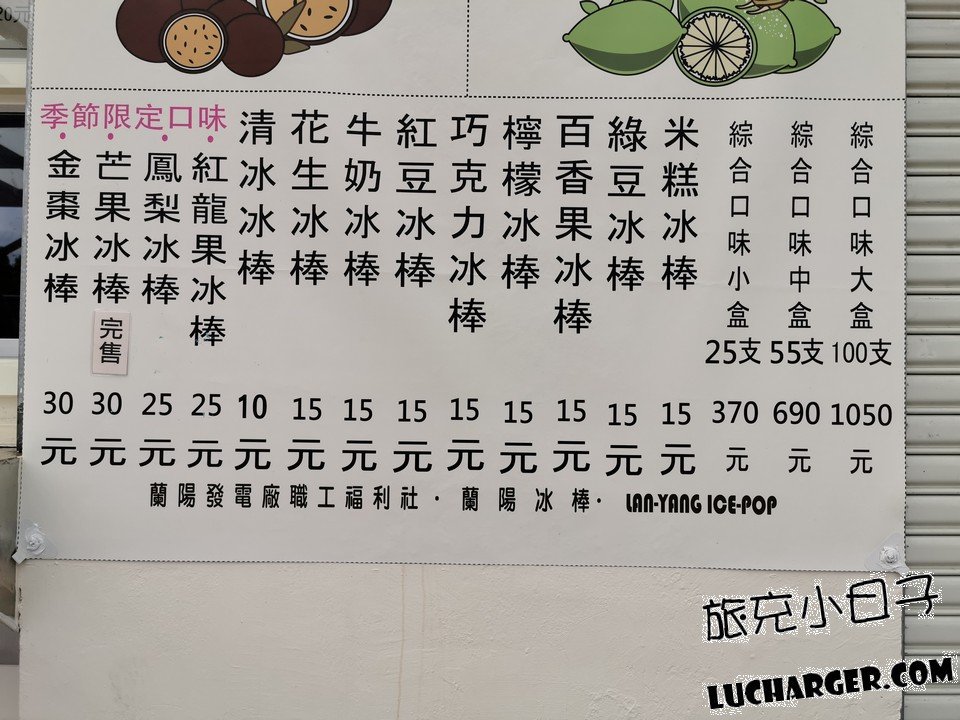 20元
季節限定口味
金棗冰棒
30元
芒果冰棒
完售
30元
鳳梨冰棒
25元
紅龍果冰棒
25元
清冰冰棒
10元
花生冰棒
15元
牛奶冰棒
15元
紅豆冰棒
15元
巧克力冰棒
15元
檸檬冰棒
15元
百香果冰棒
15元
綠豆冰棒
15元
米糕冰棒
15元
綜合口味小盒
25支
370元
綜合口味中盒
55支
690元
綜合口味大盒
100支
1050元
蘭陽發電廠職工福利社·蘭陽冰棒·LAN-YANG ICE-POP
旅充小日子
LUCHARGER.COM